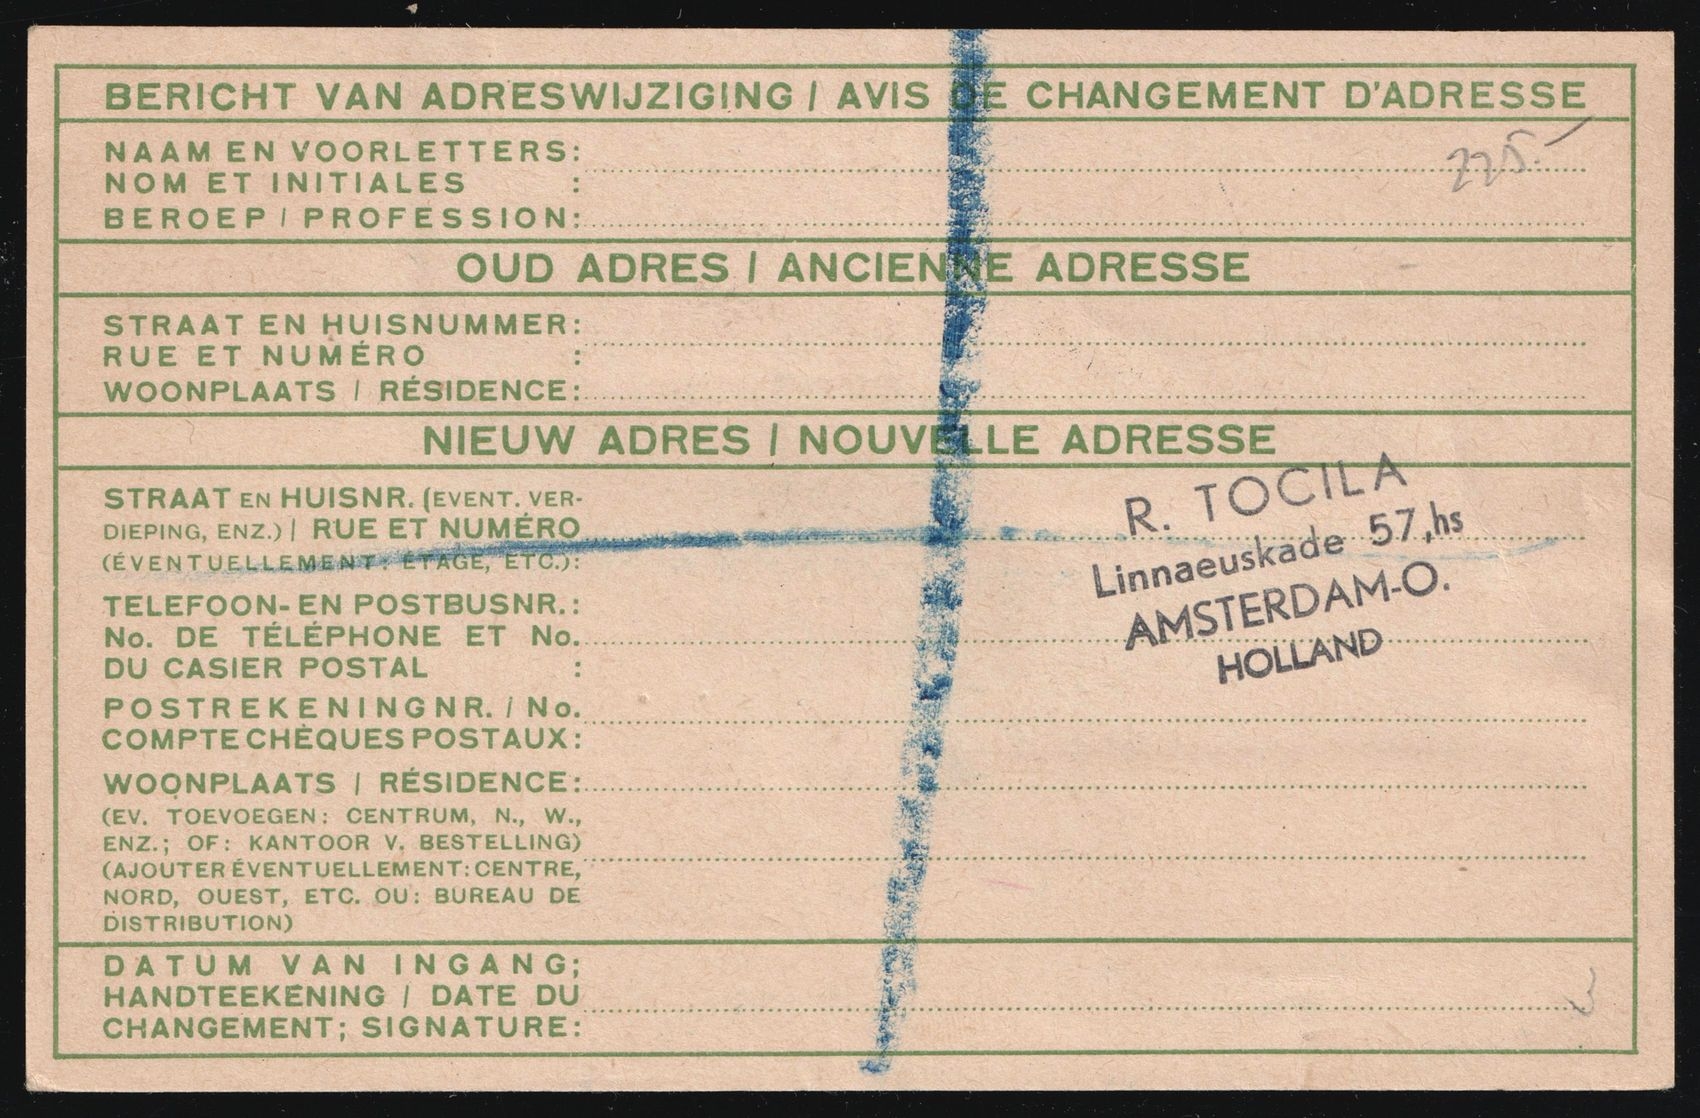 BERICHT VAN ADRESWIJZIGING / AVIS DE CHANGEMENT D'ADRESSE
NAAM EN VOORLETTERS:
225.-
NOM ET INITIALES :
BEROEP / PROFESSION:
OUD ADRES / ANCIENNE ADRESSE
STRAAT EN HUISNUMMER:
RUE ET NUMÉRO :
WOONPLAATS / RÉSIDENCE:
NIEUW ADRES / NOUVELLE ADRESSE
STRAAT EN HUISNR. (EVENT. VER-
DIEPING, ENZ.) / RUE ET NUMÉRO
(ÉVENTUELLEMENT: ÉTAGE, ETC.):
R. TOCILA
Linnaeuskade 57,hs
AMSTERDAM-O.
HOLLAND
TELEFOON- EN POSTBUSNR.:
No. DE TÉLÉPHONE ET No.
DU CASIER POSTAL :
POSTREKENINGNR. / No.
COMPTE CHÈQUES POSTAUX:
WOONPLAATS / RÉSIDENCE:
(EV. TOEVOEGEN: CENTRUM, N., W.,
ENZ.; OF: KANTOOR V. BESTELLING)
(AJOUTER ÉVENTUELLEMENT: CENTRE,
NORD, OUEST, ETC. OU: BUREAU DE
DISTRIBUTION)
DATUM VAN INGANG;
HANDTEEKENING / DATE DU
CHANGEMENT; SIGNATURE: